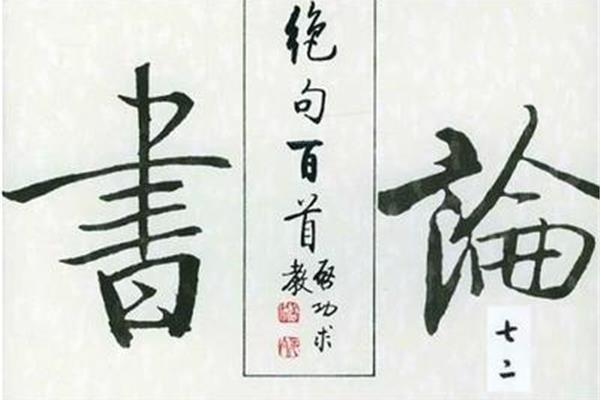 論書
絶句百首
啓功求
教
七二